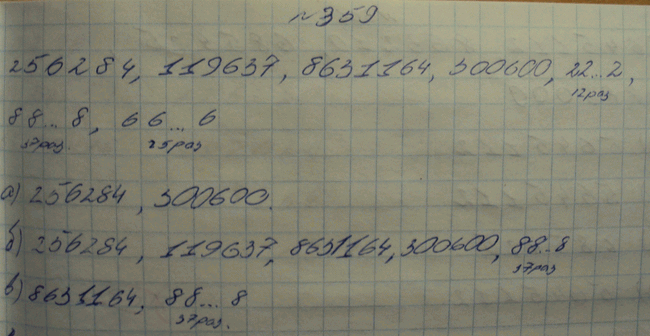 №359
256284, 119637, 8631164, 300600, 22...2,
12раз
88...8, 66...6
37раз. 25раз
а) 256284, 300600.
б) 256284, 119637, 8631164, 300600, 88..8
37раз
в) 8631164, 88...8
37раз.